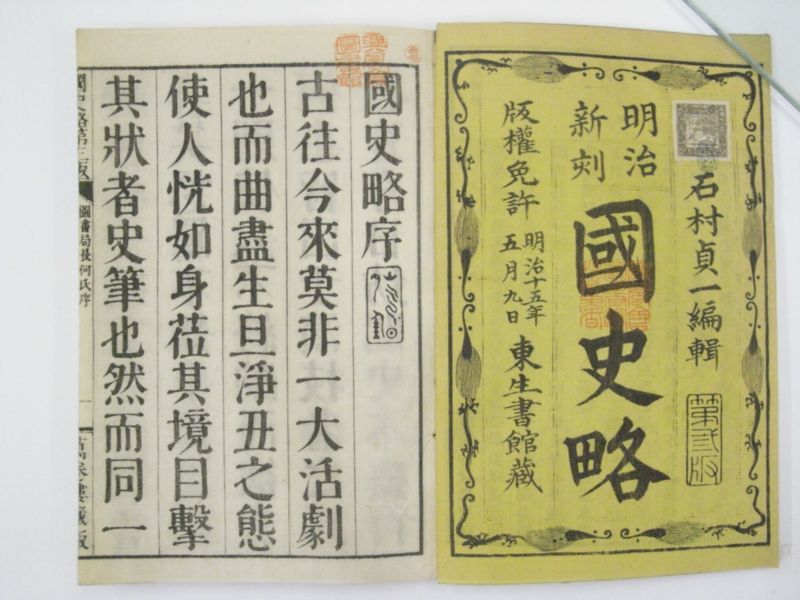 石村貞一編輯
第貳版
國史略
明治
新刻
版權免許
明治十五年
五月九日
東生書館藏
國史略序
古往今來莫非一大活劇
也而曲盡生旦淨丑之態
使人恍如身莅其境目擊
其狀者史筆也然而同一
國史略第三版
圖書局長何氏序
一